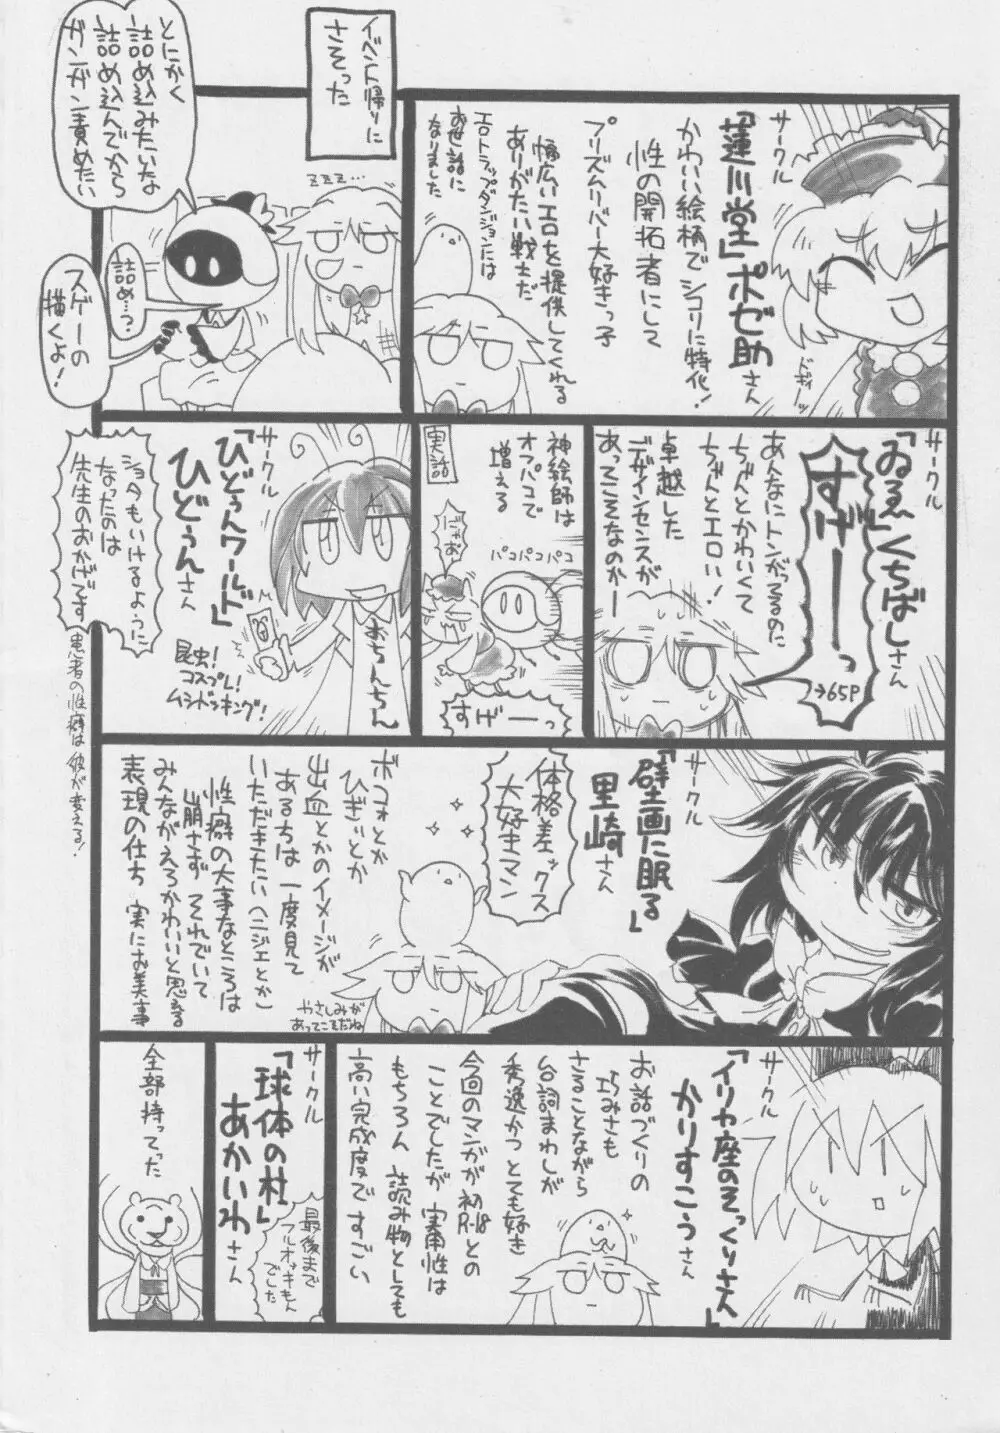 サークル
「蓮川堂」ポゼ助さん
かわいい絵柄でシコリに特化!
性の開拓者にして
プリズムリバー大好きっ子
幅広いエロを提供してくれる
ありがたい戦士だ
エロトラップダンジョンには
お世話に
なりました
ドギャーッ
イベント帰りに
さそった
とにかく
詰め込みたいな
詰め込んでから
ガンガン責めたい
zzz…
詰め…?
スゲーの
描くよ!
サークル
「ゐゑ」くちばしさん
すげーーっ
→65P
あんなにトンがってるのに
ちゃんとかわいくて
ちゃんとエロい!
卓越した
デザインセンスが
あってこそなのかー
神絵師は
オフパコで
増える
実話
パコパコパコ
すげーっ
サークル
「ひどぅんワールド」
ひどぅんさん
おちんちん
昆虫!
コスプレ!
ムシドンキング!
ショタもいけるように
なったのは
先生のおかげです
患者の性癖は彼が変える!
サークル
「壁画に眠る」
里崎さん
体格差ックス
大好きマン
ボコォとか
ひぎぃとか
出血とかのイメージが
あるちは一度見て
いただきたい(ニジェとか)
性癖の大事なところは
崩さず それでいて
みんながえろかわいいと思える
表現の仕ち 実にお美事
やさしみが
あってこそだね
サークル
「イリカ座のそっくりさん」
かりすこうさん
お話づくりの
巧みさも
さることながら
台詞まわしが
秀逸かつとても好き
今回のマンガが初R-18との
ことでしたが 実用性は
もちろん 読み物としても
高い完成度ですごい
サークル
「球体の杜」
あかいわさん
最後まで
フルオッキもん
でした
全部持ってった